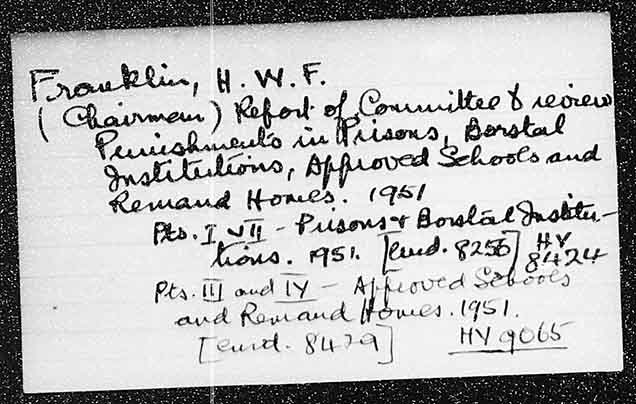 Franklin, H. W. F.
(Chairman) Report of Committee to review
Punishments in Prisons, Borstal
Institutions, Approved Schools and
Remand Homes. 1951
Pts. I & II - Prisons & Borstal Institu-
tions. 1951. [Cmd. 8256] HV
8424
Pts. III and IV - Approved Schools
and Remand Homes. 1951.
[Cmd. 8429] HV 9065